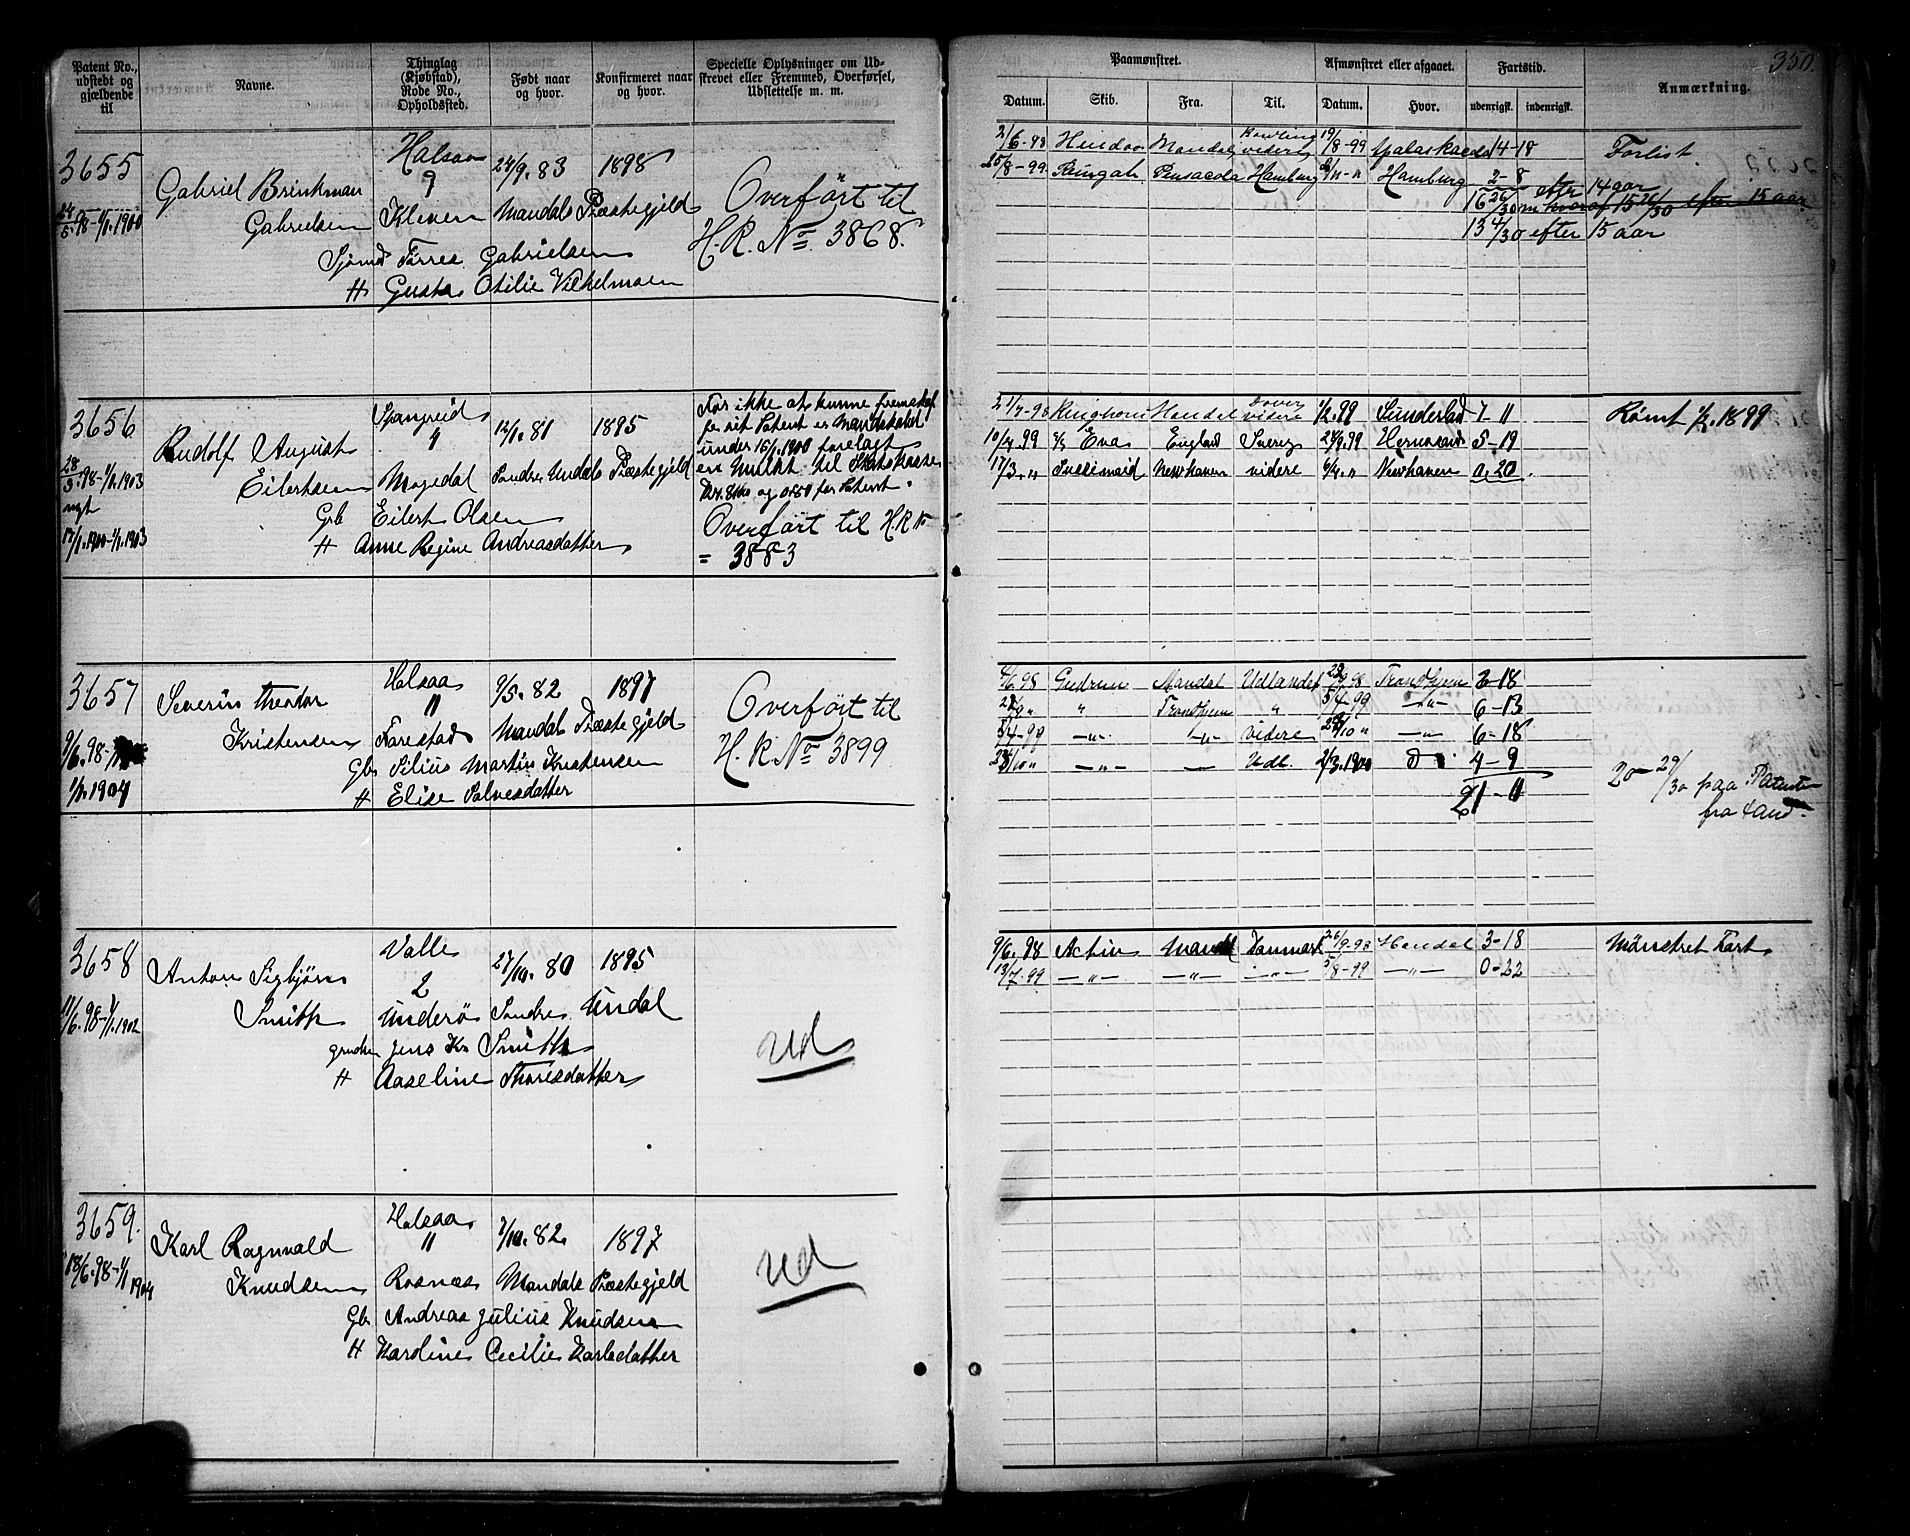 Patent No., udstedt og gjældende til
Navne.
Thinglag (Kjøbstad), Rode No., Opholdssted.
Født naar og hvor.
Konfirmeret naar og hvor.
Specielle Oplysninger om Udskrevet eller Fremmed, Overførsel, Udslettelse m. m.
3655
Halsaa
24/9. 83
1898
Gabriel Brinkman
9
Overført til
24/5.98-1/1.1900
Gabrielsen
Kleven
Mandals Præstegjeld
H. R. No. 3868.
Sjømd Tørres Gabrielsen
H Gusta Otilie Vilhelmsen
3656
Spangereid
12/1. 81
1895
For ikke at kunne fremskaf
Rudolf August
4
fe sit Patent er Mandskabet
under 15/1.1900 forelagt
28/5.98-1/1.1903
Eilertsen
Mogedal
Søndre Undals Præstegjeld
en Mulkt til Statskassen
nyt
Kr. 8.00 og 0.50 for Patent.
Gb Eilert Olsen
Overført til H.R No
17/1.1900-1/1.1903
H Anne Regine Andreasdatter
= 3883
3657
Halsaa
9/5. 82
1897
Severin Theodor
11
Overført til
9/6.98-
Kristensen
Farestad
Mandals Præstegjeld
H. R. No 3899
Gb Silius Martin Kristensen
1/1.1904
H Elise Salvesdatter
3658
Valle
27/10. 80
1895
Anton Sigbjørn
2
11/6.98-1/1.1902
Smith
Underø
Søndre Undal
jens Kr Smith
ud
H Aaseline Thorisdatter
3659.
Halsaa
7/10. 82.
1897
Karl Ragnvald
11
ud
18/6.98-1/1 1904
Knudsen
Rosnæs
Mandals Præstegjeld
Gb Andreas julius Knudsen
H Karoline Cecilie Karlsdatter
350.
Paamønstret.
Afmønstret eller afgaaet.
Fartstid.
Anmærkning.
Datum.
Skib.
Fra.
Til.
Datum.
Hvor.
udenrigsk.
indenrigsk.
21/6-98 Hindoo Mandal videre 19/8-99 14-18 Forlist.
25/8-99 Pensacola Hamburg Hamburg 2-8
efter 14 aar
15 26/30 efter 15 aar
13 4/30 efter 15 aar
21/7-98 Ringhorn Mandal Dover videre 1/2.99 Sunderland 7-11 Rømt 1/2.1899
10/4.99 Eva England Sverig 29/9.99 Hernøsand 5-19
17/3 „ Sussimaid Newhaven videre 6/4. „ Newhaven 0.20
6/6.98 Gudrun Mandal Udlandet Trondhjem 3-18
„ Trondhjem „ 5/4-99 -„- 6-13
5/4-99 -„- -„- videre 23/10 „ -„- 6-18
23/10 „ -„- — Udl. 2/3.1900 do 4-9
21-11
20 29/30 paa Patentet
fra Land.
9/6.98 Activ Mandal Danmark 26/9-98 Mandal 3-18 Mønstret Fart
13/7-99 -„- -„- -„- 5/8-99 -„- 0-22